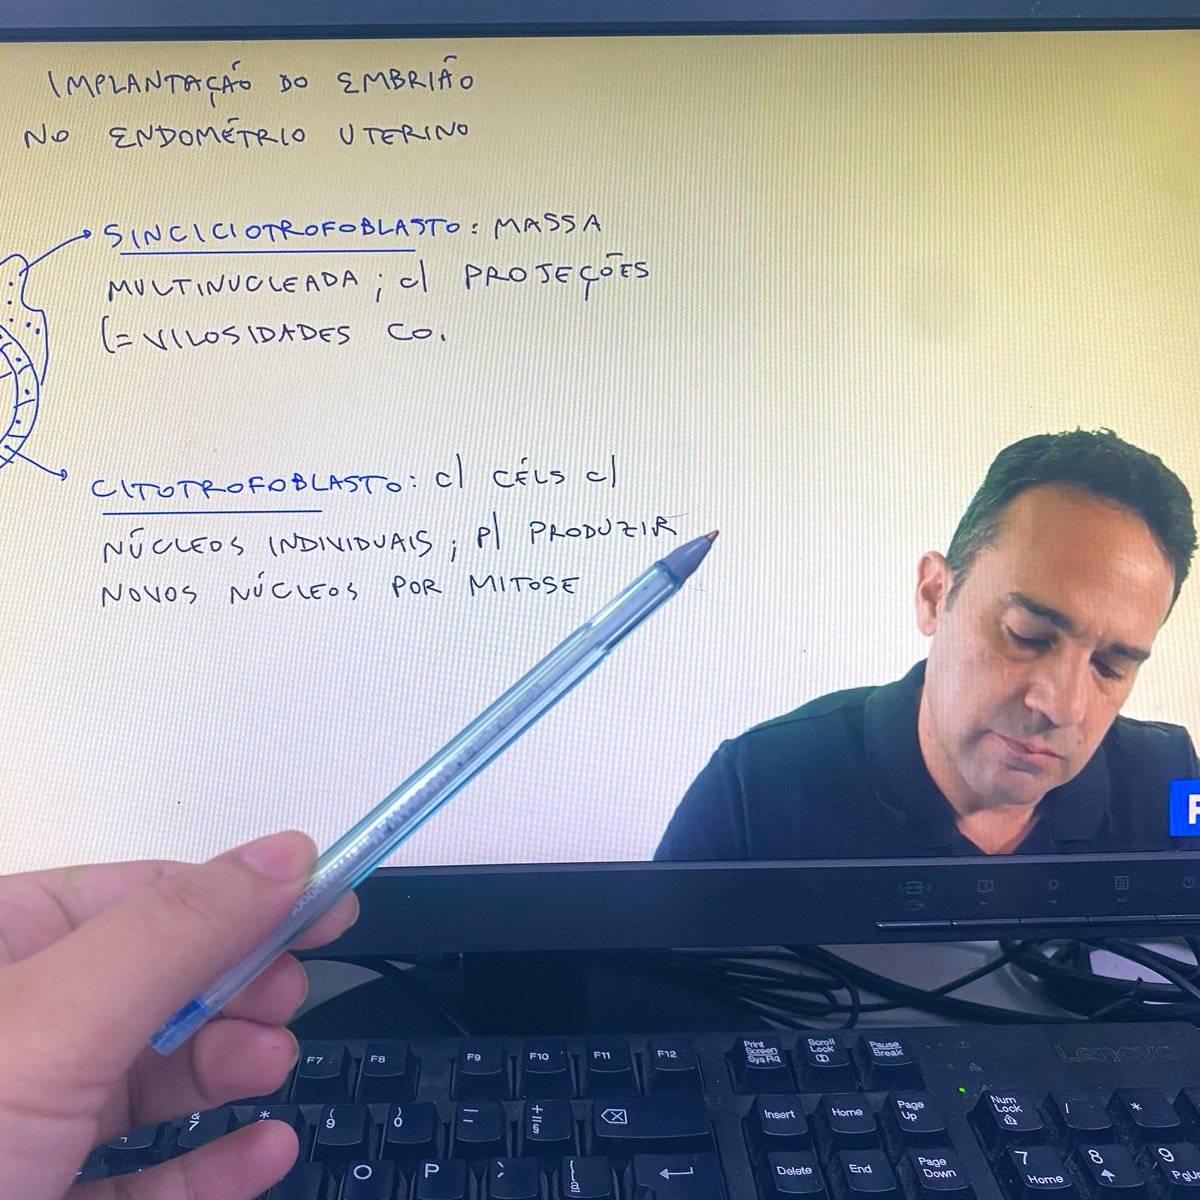 IMPLANTAÇÃO DO EMBRIÃO
NO ENDOMÉTRIO UTERINO
SINCICIOTROFOBLASTO: MASSA
MULTINUCLEADA; C/ PROJEÇÕES
(= VILOSIDADES CO.
CITOTROFOBLASTO: C/ CÉLS C/
NÚCLEOS INDIVIDUAIS; P/ PRODUZIR
NOVOS NÚCLEOS POR MITOSE
F
Lenovo
F7 F8 F9 F10 F11 F12 Print Screen SysRq Scroll Lock Pause Break
& 7 * ( 9 ) 0 — = + = § Insert Home Page Up Num Lock / *
O P { [ ª Delete End Page Down 7 Home 8 9 PgU